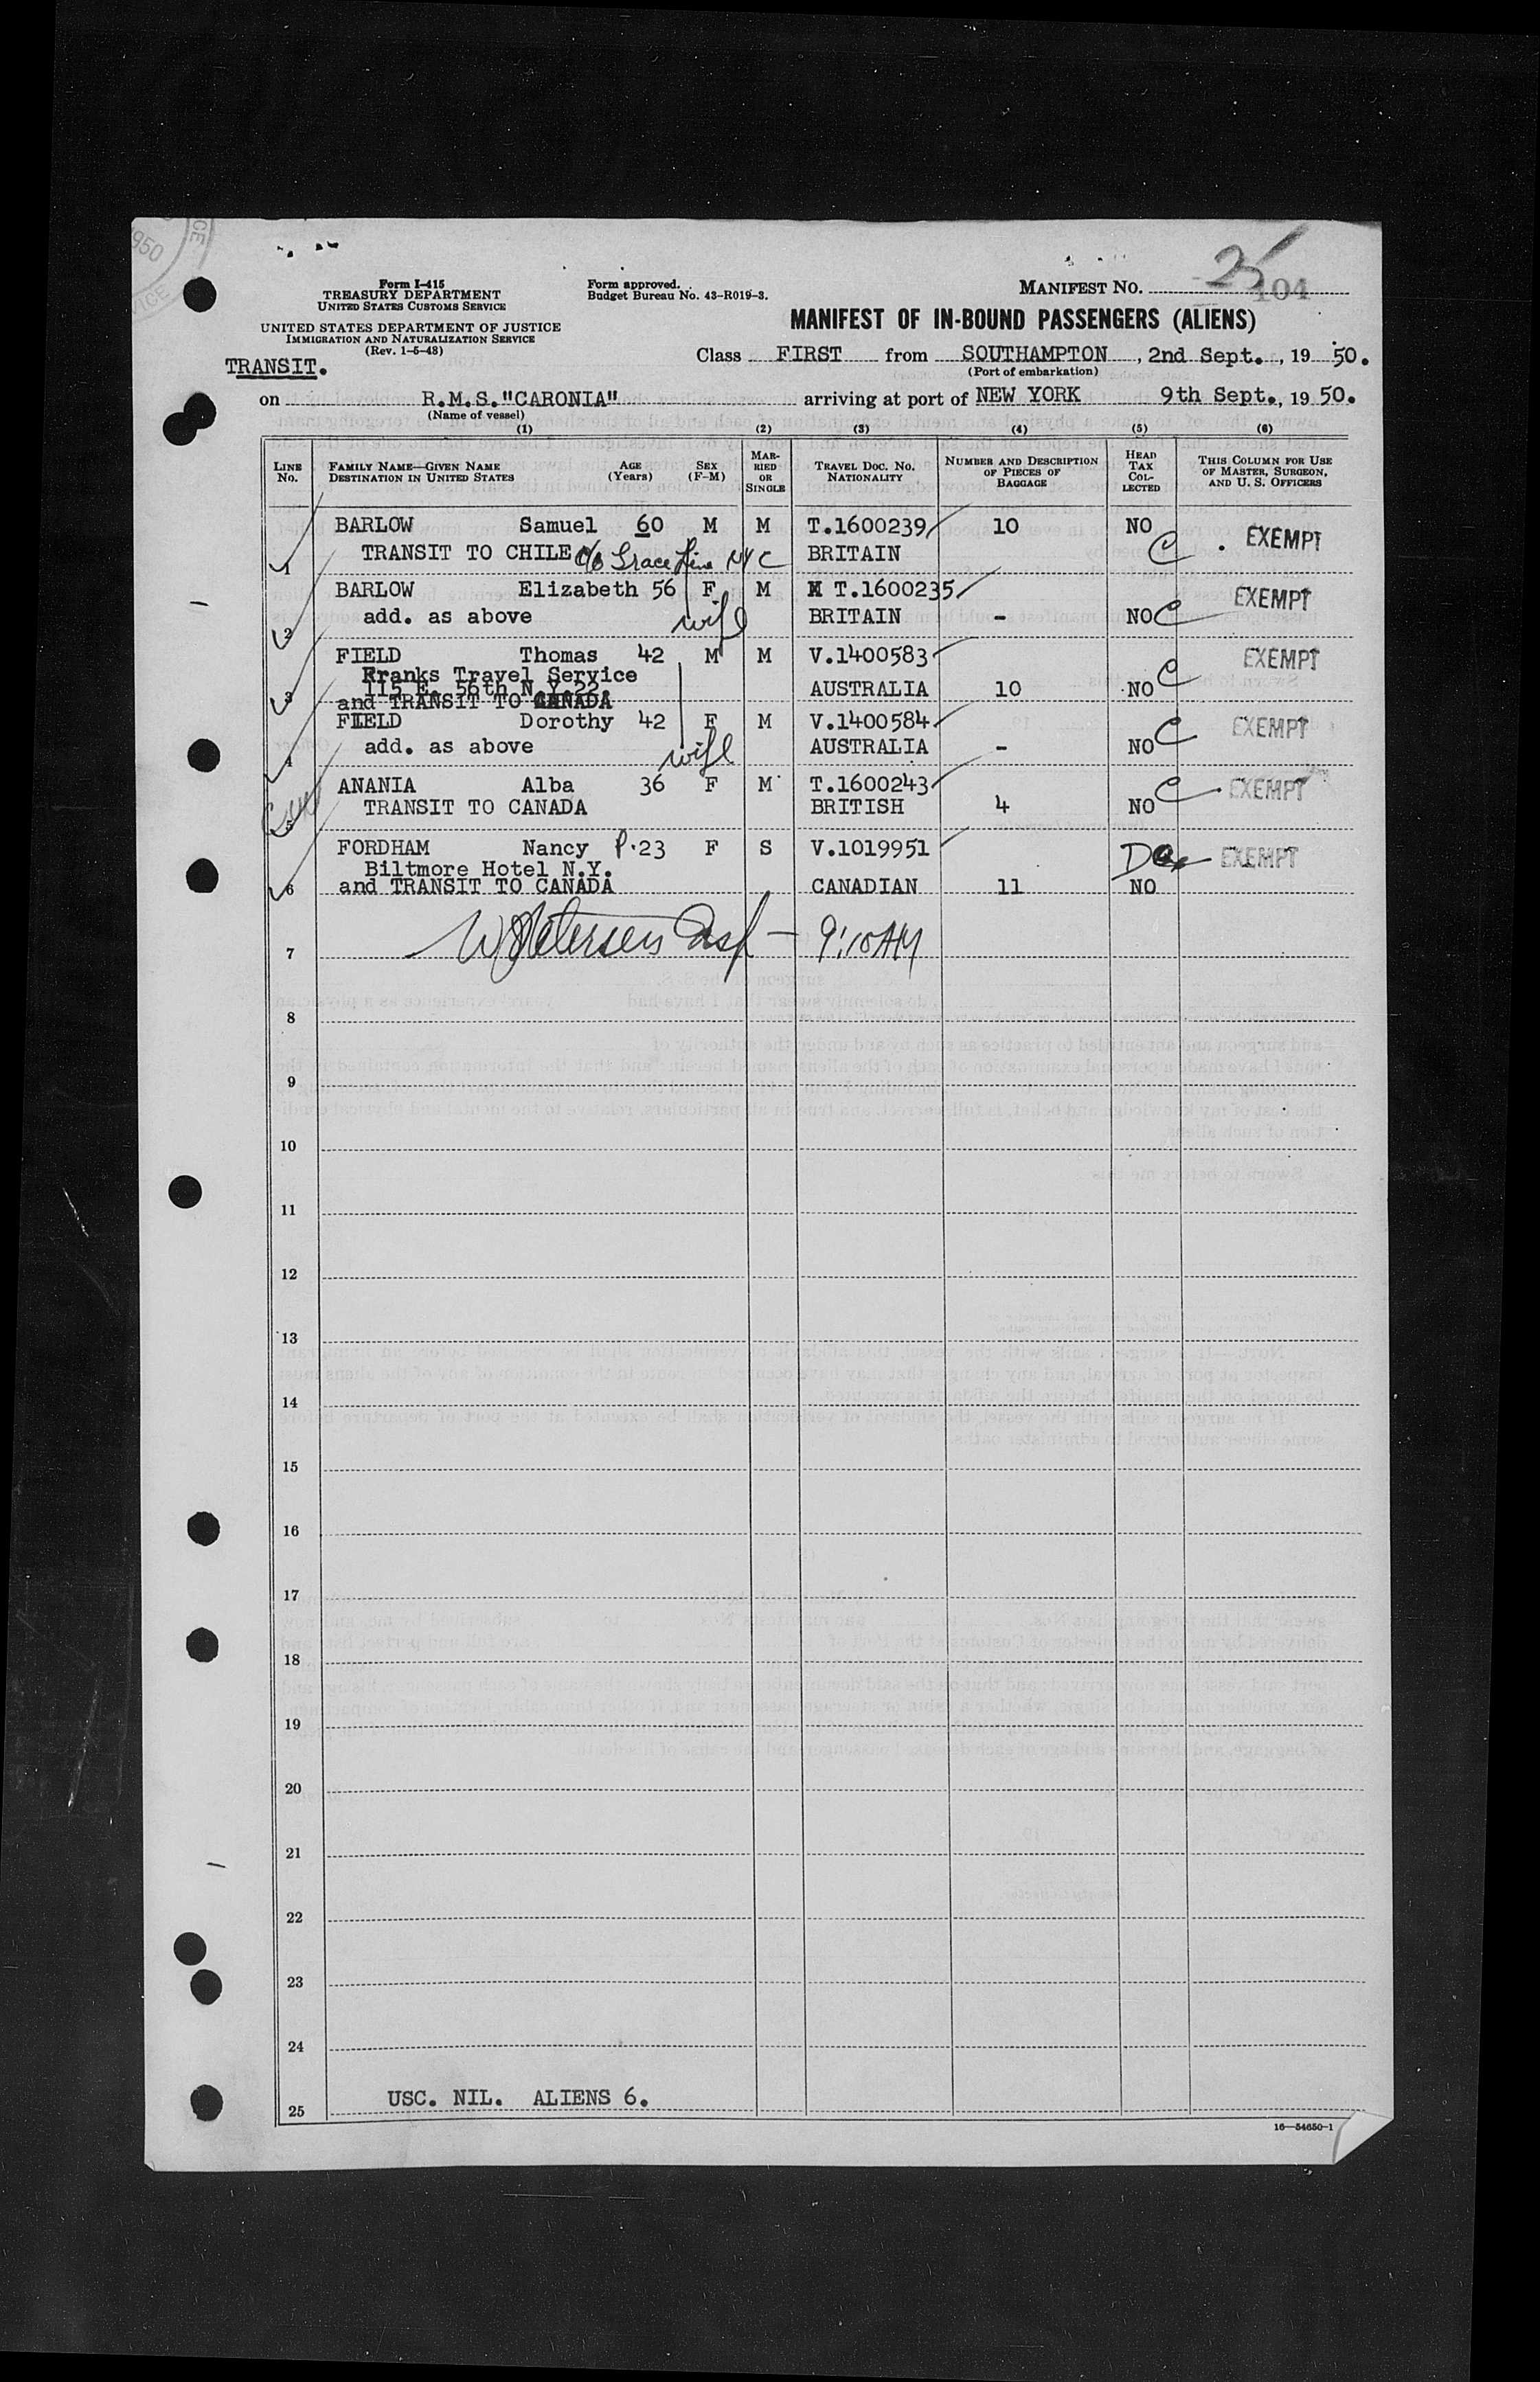 1950
ICE
VICE
25
104
Form I-415
TREASURY DEPARTMENT
UNITED STATES CUSTOMS SERVICE
Form approved.
Budget Bureau No. 43-R019-3.
MANIFEST NO.
UNITED STATES DEPARTMENT OF JUSTICE
IMMIGRATION AND NATURALIZATION SERVICE
(Rev. 1-5-48)
MANIFEST OF IN-BOUND PASSENGERS (ALIENS)
TRANSIT.
Class FIRST from SOUTHAMPTON, 2nd Sept., 19 50.
(Port of embarkation)
on R.M.S."CARONIA" arriving at port of NEW YORK 9th Sept., 19 50.
(Name of vessel)
(1) (2) (3) (4) (5) (6)
LINE No. FAMILY NAME—GIVEN NAME DESTINATION IN UNITED STATES AGE (Years) SEX (F-M) MARRIED OR SINGLE TRAVEL DOC. NO. NATIONALITY NUMBER AND DESCRIPTION OF PIECES OF BAGGAGE HEAD TAX COLLECTED THIS COLUMN FOR USE OF MASTER, SURGEON, AND U. S. OFFICERS
BARLOW Samuel 60 M M T.1600239 10 NO EXEMPT
1 TRANSIT TO CHILE c/o Grace Line NYC BRITAIN C
BARLOW Elizabeth 56 F M T.1600235 EXEMPT
2 add. as above wife BRITAIN - NO C
FIELD Thomas 42 M M V.1400583 EXEMPT
Franks Travel Service
115 E. 56th N.Y.22.
3 and TRANSIT TO CANADA AUSTRALIA 10 NO C
FIELD Dorothy 42 F M V.1400584 EXEMPT
4 add. as above wife AUSTRALIA - NO C
ANANIA Alba 36 F M T.1600243 EXEMPT
5 TRANSIT TO CANADA BRITISH 4 NO C
FORDHAM Nancy P. 23 F S V.1019951 EXEMPT
Biltmore Hotel N.Y.
6 and TRANSIT TO CANADA CANADIAN 11 NO
7 9:10 AM
8
9
10
11
12
13
14
15
16
17
18
19
20
21
22
23
24
25 USC. NIL. ALIENS 6.
16—54650-1